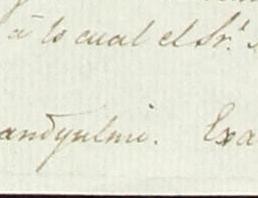 á lo cual el Sr.
andyulmi. Exa